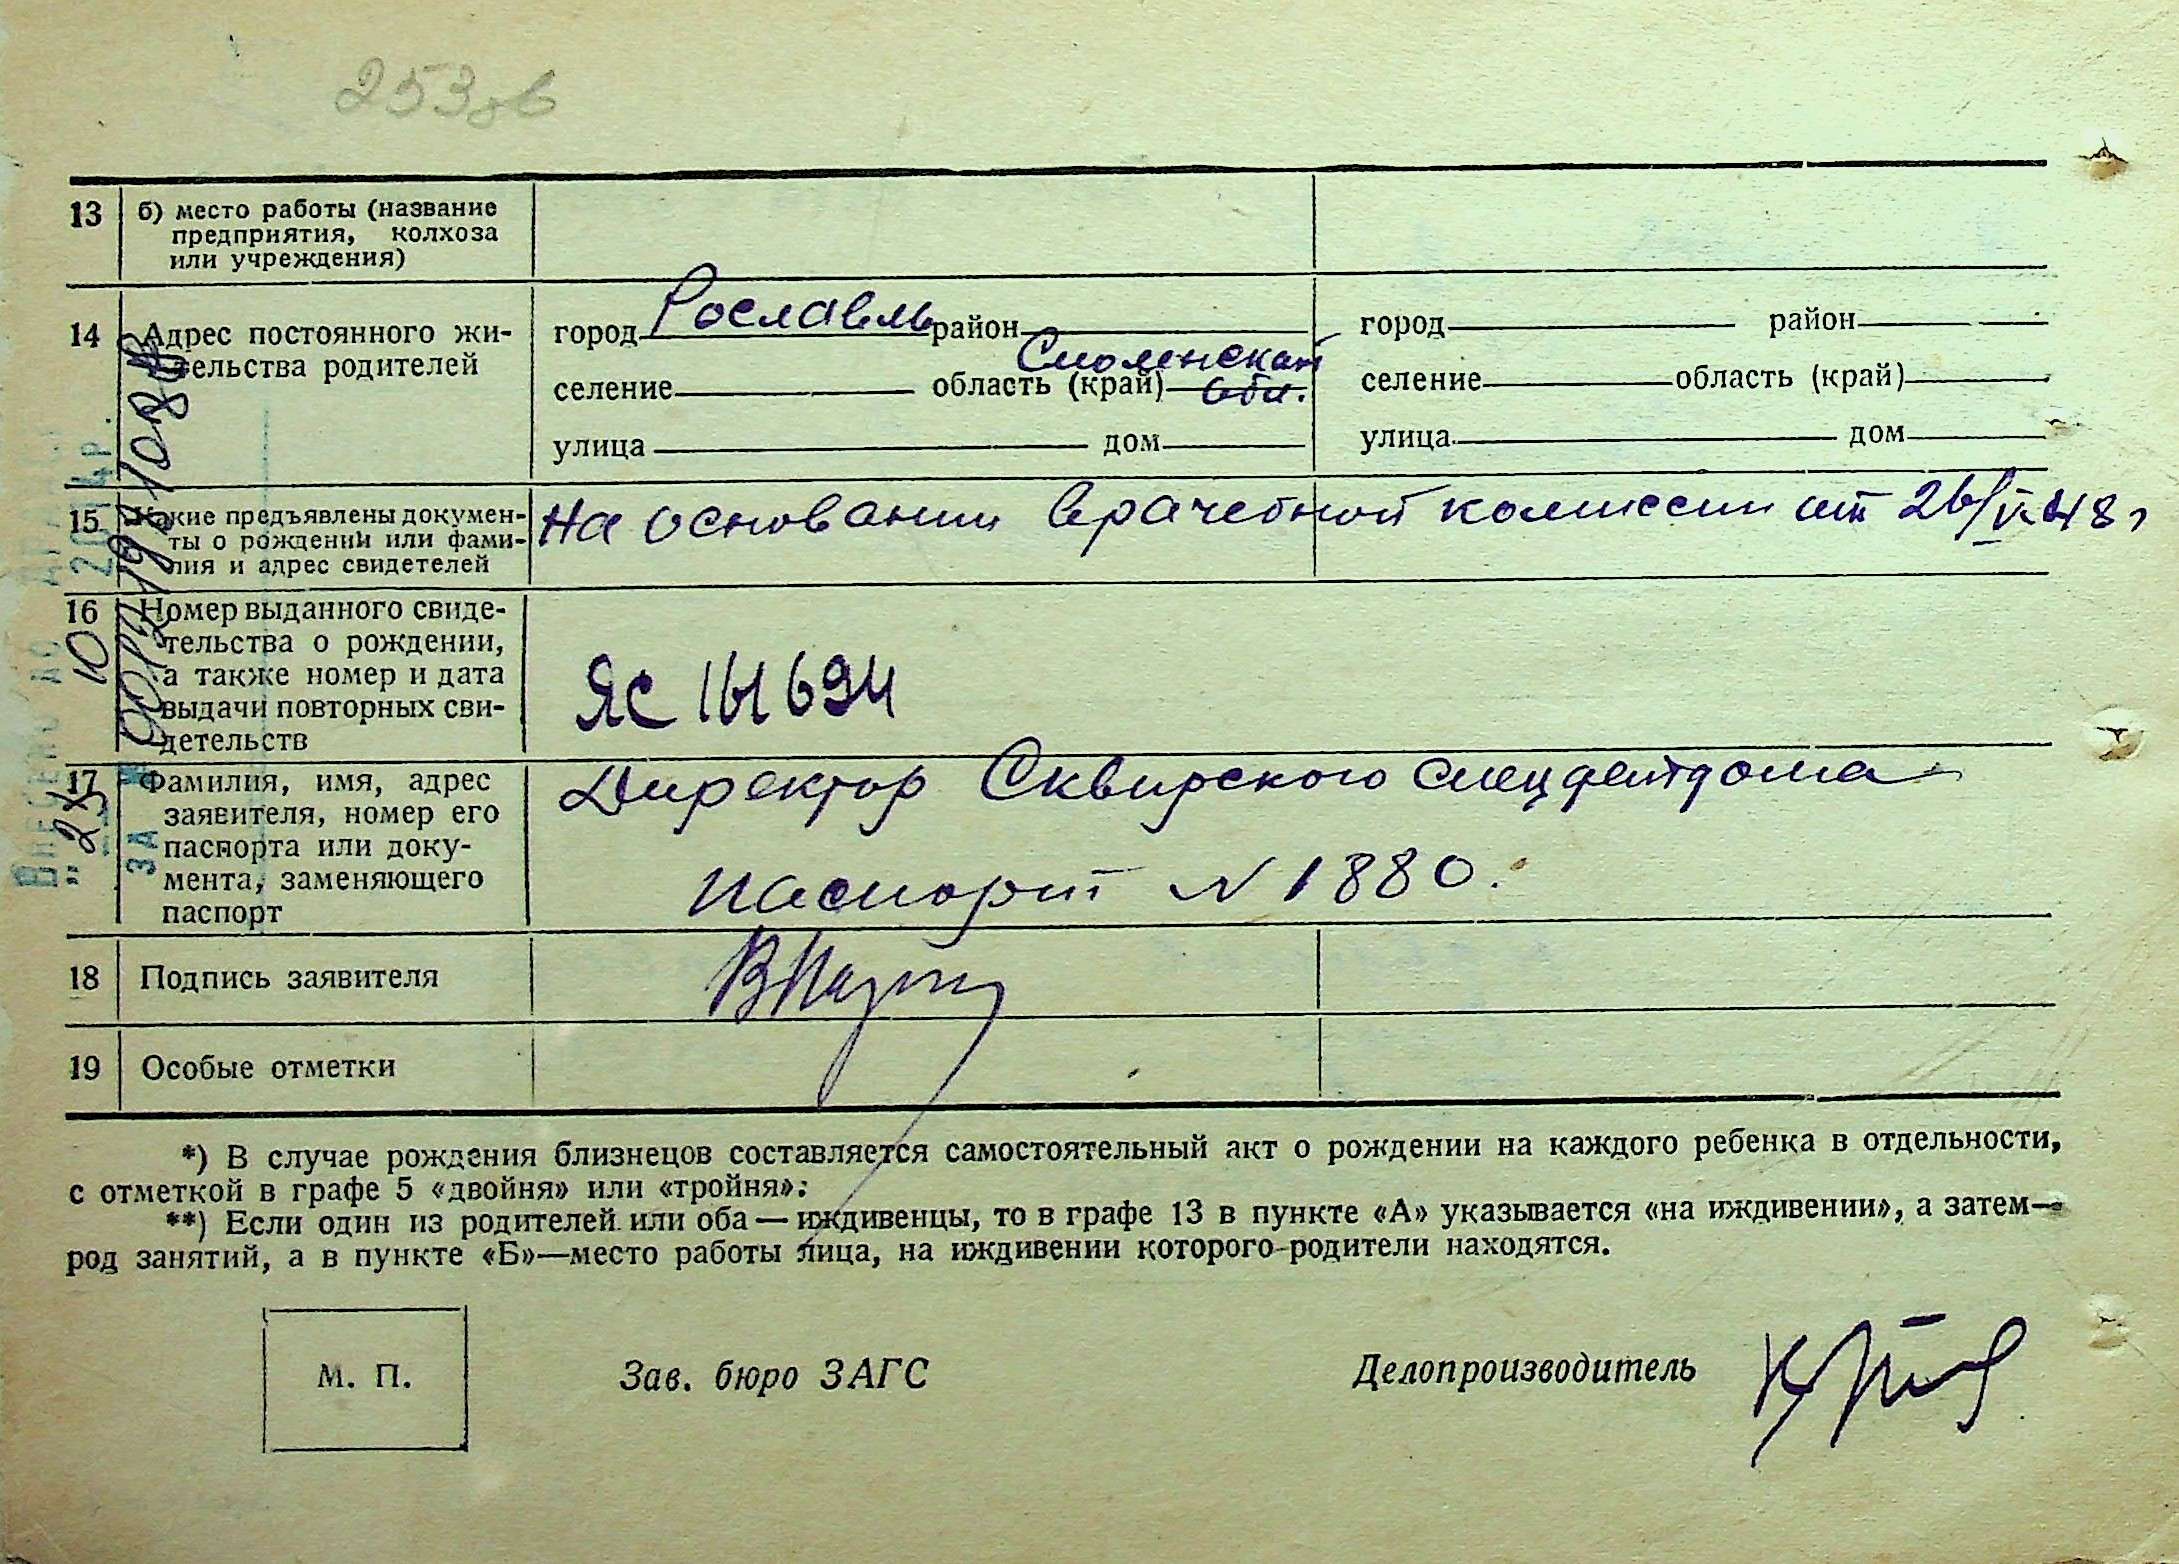 253 зв
13 б) место работы (название
предприятия, колхоза
или учреждения)
14 Адрес постоянного жи-
тельства родителей
город Рославль район
Смоленская
селение область (край) обл.
улица дом
город район
селение область (край)
улица дом
15 Какие предъявлены докумен-
ты о рождении или фами-
лия и адрес свидетелей
На основании врачебной комиссии от 26/V-48 г
16 Номер выданного свиде-
тельства о рождении,
а также номер и дата
выдачи повторных сви-
детельств
ЯС 161694
17 Фамилия, имя, адрес
заявителя, номер его
паспорта или доку-
мента, заменяющего
паспорт
Директор Сквирского спецдетдома
паспорт N 1880.
18 Подпись заявителя
19 Особые отметки
*) В случае рождения близнецов составляется самостоятельный акт о рождении на каждого ребенка в отдельности,
с отметкой в графе 5 «двойня» или «тройня»;
**) Если один из родителей или оба — иждивенцы, то в графе 13 в пункте «А» указывается «на иждивении», а затем—
род занятий, а в пункте «Б»—место работы лица, на иждивении которого родители находятся.
М. П.
Зав. бюро ЗАГС
Делопроизводитель